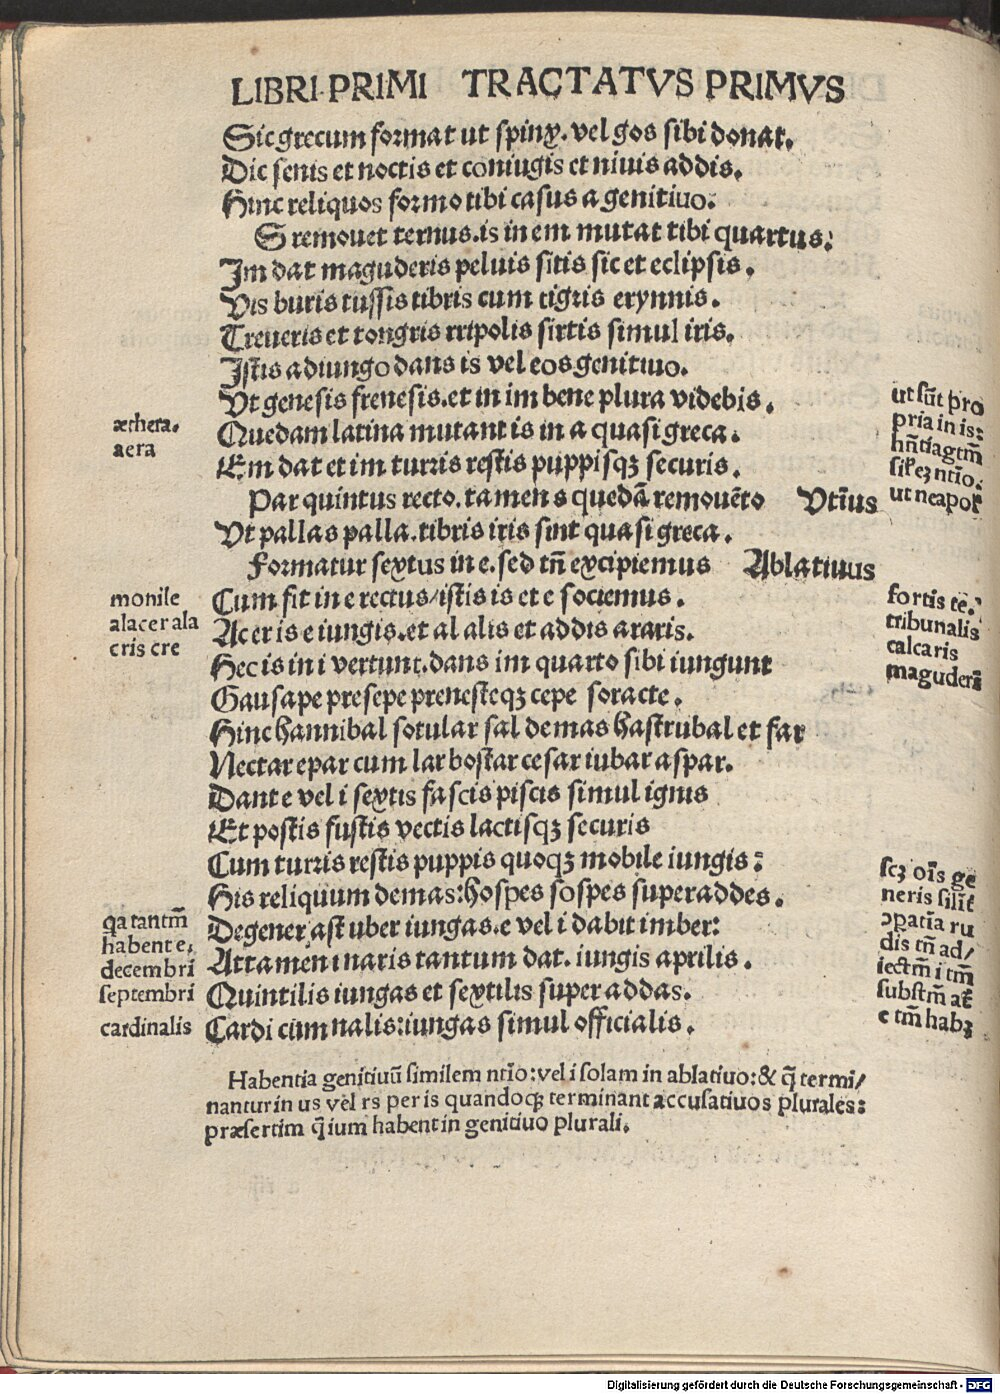 LIBRI PRIMI TRACTATVS PRIMVS
Sic grecum format ut spinx. vel gos sibi donat.
Dic senis et noctis et coniugis et niuis addis.
Hinc reliquos formo tibi casus a genitiuo:
S remouet ternus. is in em mutat tibi quartus:
Im dat maguderis peluis sitis sic et eclipsis.
Vis buris tussis tibris cum tigris erynnis.
Treueris et tongris tripolis sirtis simul iris.
Istis adiungo dans is vel eos genitiuo.
Vt genesis frenesis. et in im bene plura videbis.
Quedam latina mutant is in a quasi greca.
Em dat et im turris restis puppisqꝫ securis.
Par quintus recto. tamen s quedã remouẽto Vtĩus
Vt pallas palla. tibris iris sint quasi greca.
Formatur sextus in e. sed tñ excipiemus Ablatiuus
Cum fit in e rectus/istis is et e sociemus.
Acer is e iungis. et al alis et addis araris.
Hec is in i vertunt. dans im quarto sibi iungunt
Gausape presepe prenesteqꝫ cepe soracte.
Hinc hannibal sotular sal demas hastrubal et far
Nectar epar cum lar bostar cesar iubar aspar.
Dant e vel i sextis fascis piscis simul ignis
Et postis fustis vectis lactisqꝫ securis
Cum turris restis puppis quoqꝫ mobile iungis:
His reliquum demas: hospes sospes superaddes.
Degener ast uber iungas. e vel i dabit imber:
Attamen i naris tantum dat. iungis aprilis.
Quintilis iungas et sextilis super addas.
Cardi cum nalis: iungas simul officialis.
Habentia genitiuũ similem ntĩo: vel i solam in ablatiuo: & q̃ termi/
nantur in us vel rs per is quandoqꝫ terminant accusatiuos plurales:
præsertim q̃ ium habent in genitiuo plurali.
æthera.
aera
monile
alacer ala
cris cre
qa tantm̃
habent e,
decembri
septembri
cardinalis
ut sũt pro
pria in is:
hñtia gtm̃
silẽꝫ ntĩo.
ut neapol
fortis te.
tribunalis
calcaris
maguderĩ
scꝫ oĩs ge
neris silĩt
ɔpatĩa ru
dis tñ ad/
iectm̃ i tm̃
substm̃ at
e tm̃ habꝫ
Digitalisierung gefördert durch die Deutsche Forschungsgemeinschaft - DFG